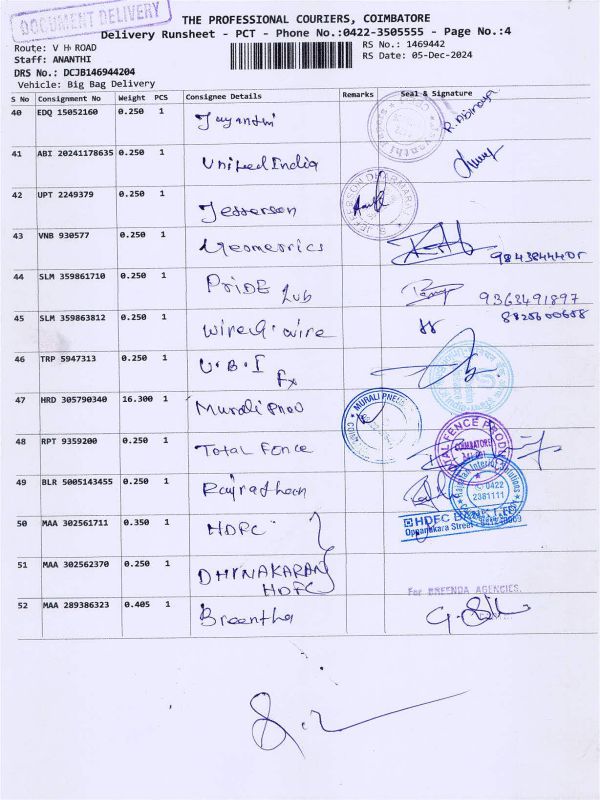 DOCUMENT DELIVERY
THE PROFESSIONAL COURIERS, COIMBATORE
Delivery Runsheet - PCT - Phone No.:0422-3505555 - Page No.:4
Route: V H ROAD
RS No.: 1469442
Staff: ANANTHI
RS Date: 05-Dec-2024
DRS No.: DCJB146944204
Vehicle: Big Bag Delivery
S No Consignment No Weight PCS Consignee Details Remarks Seal & Signature
40 EDQ 15052160 0.250 1 Jayanthi
41 ABI 20241178635 0.250 1 United India
42 UPT 2249379 0.250 1 Jefferson
43 VNB 930577 0.250 1 Geometrics
44 SLM 359861710 0.250 1 PRiDE Lub 9363491897
45 SLM 359863812 0.250 1 wire & wire
46 TRP 5947313 0.250 1 U.B.I Fx
47 HRD 305790340 16.300 1 Murali Pneu MURALI PNEU
48 RPT 9359200 0.250 1 Total Fence COIMBATORE
49 BLR 5005143455 0.250 1 0422 2381111
50 MAA 302561711 0.350 1 HDFC HDFC BANK LTD
Oppanakara Street
51 MAA 302562370 0.250 1 DHINAKARAN
HDFC
For BREENDA AGENCIES.
52 MAA 289386323 0.405 1